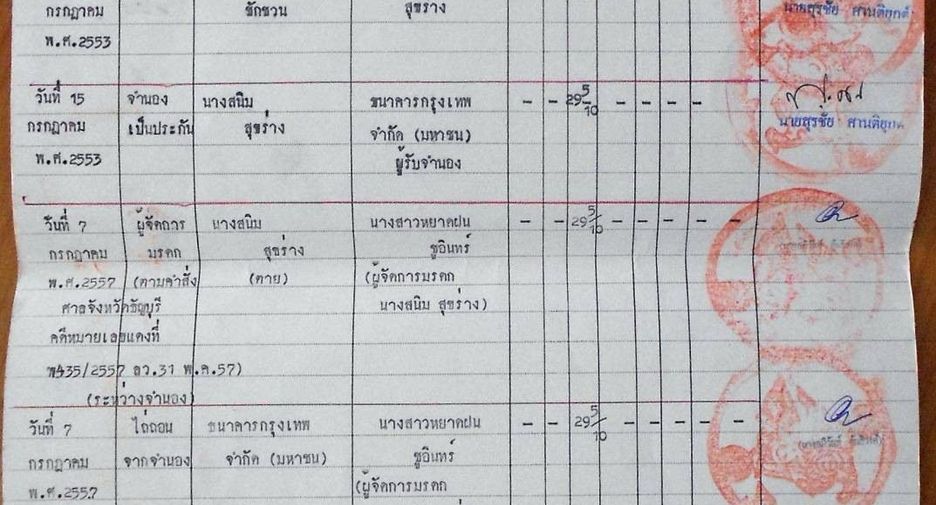 กรกฎาคม ซักชวน สุขร่าง นายสุรชัย ศานติยุกต์
พ.ศ.2553
วันที่ 15 จำนอง นางสนิม ธนาคารกรุงเทพ - - 29 5/10 - - - -
กรกฎาคม เป็นประกัน สุขร่าง จำกัด (มหาชน) นายสุรชัย ศานติยุกต์
พ.ศ.2553 ผู้รับจำนอง
วันที่ 7 ผู้จัดการ นางสนิม นางสาวหยาดฝน - - 29 5/10 - - - - -
กรกฎาคม มรดก สุขร่าง ชูอินทร์
พ.ศ.2557 (ตามคำสั่ง (ตาย) (ผู้จัดการมรดก
ศาลจังหวัดธัญบุรี นางสนิม สุขร่าง)
คดีหมายเลขแดงที่
พ435/2557 ลว.31 พ.ค.57)
(ระหว่างจำนอง)
วันที่ 7 ไถ่ถอน ธนาคารกรุงเทพ นางสาวหยาดฝน - - 29 5/10 - - - - -
กรกฎาคม จากจำนอง จำกัด (มหาชน) ชูอินทร์
พ.ศ.2557 (ผู้จัดการมรดก